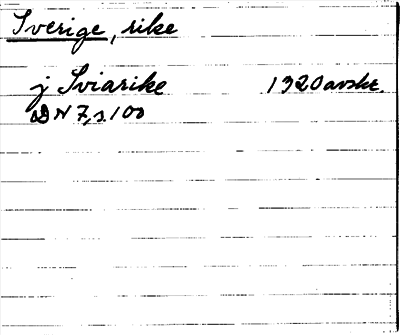 Sverige, rike
j Sviarike 1320 avskr.
DN 7, s. 100